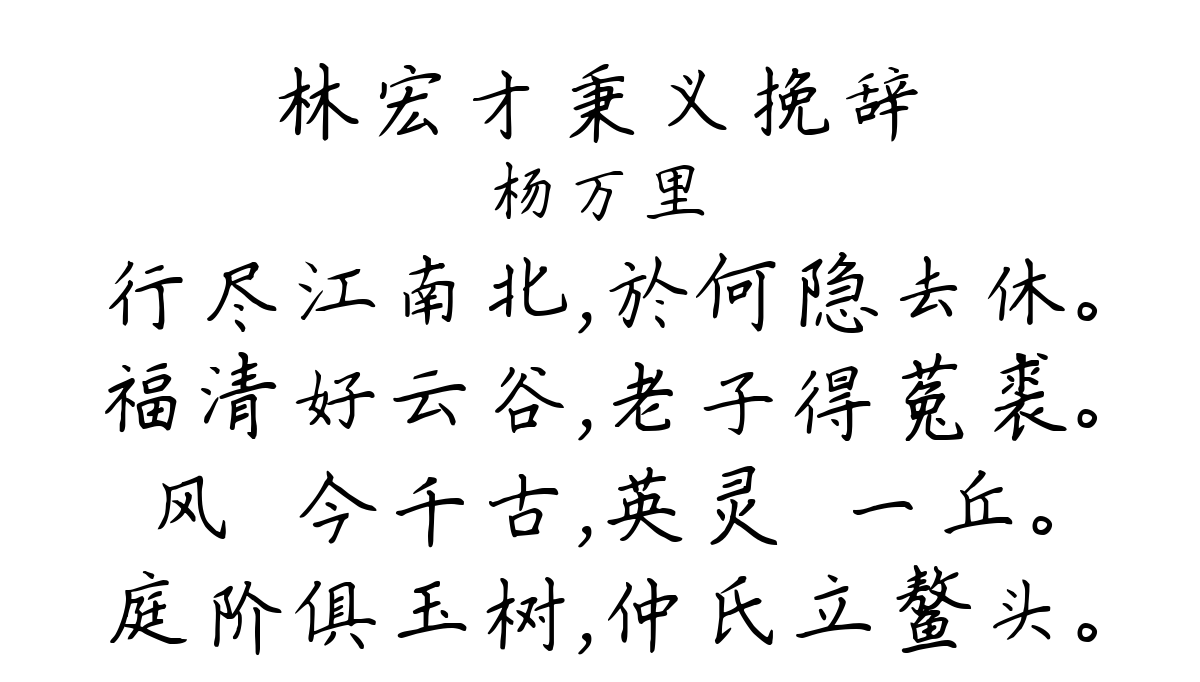 林宏才秉义挽辞
杨万里
行尽江南北,於何隐去休。
福清好云谷,老子得菟裘。
风 今千古,英灵 一丘。
庭阶俱玉树,仲氏立鳌头。